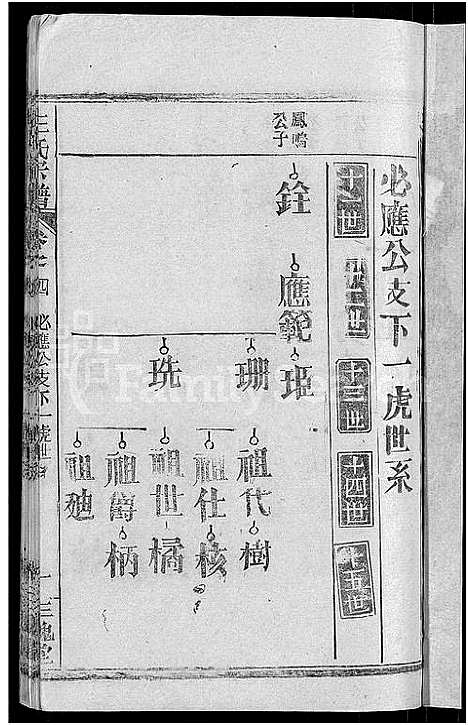 必應公支下一虎世系
十一世
十二世
十三世
十四世
十五世
鳳鳴
公子
銓
應範
珊
珗
祖代
樹
祖仕
核
祖世
橘
祖爵
柄
祖
王氏宗譜
四
必應公支下一虎世系
三槐堂